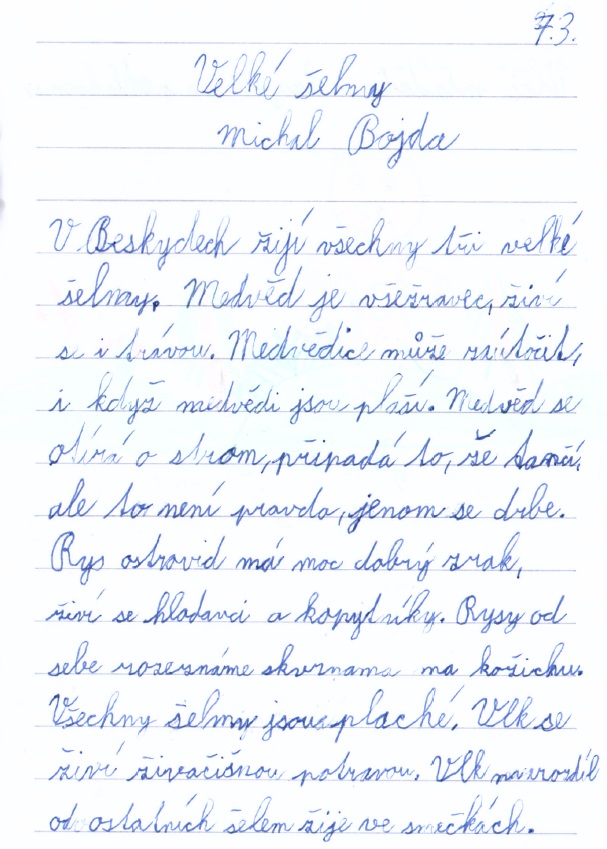 7.3.
Velké šelmy
Michal Bojda
V Beskydech žijí všechny tři velké
šelmy. Medvěd je všežravec, živí
se i trávou. Medvědice může zaútočit,
i když medvědi jsou plaší. Medvěd se
otírá o strom, připadá to, že tančí,
ale to není pravda, jenom se drbe.
Rys ostrovid má moc dobrý zrak,
živí se hlodavci a kopytníky. Rysy od
sebe rozeznáme skvrnama na kožichu.
Všechny šelmy jsou plaché. Vlk se
živí živačišnou potravou. Vlk na rozdíl
od ostatních šelem žije ve smečkách.